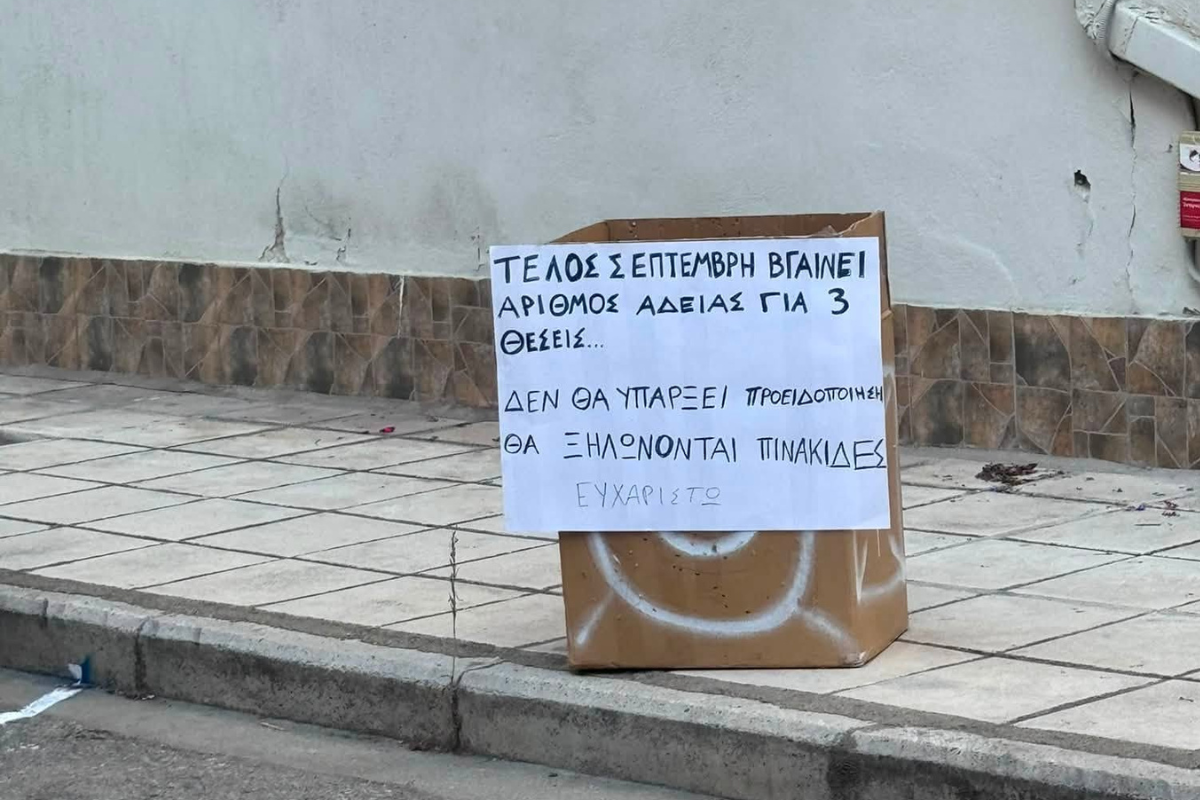 ΤΕΛΟΣ ΣΕΠΤΕΜΒΡΗ ΒΓΑΙΝΕΙ
ΑΡΙΘΜΟΣ ΑΔΕΙΑΣ ΓΙΑ 3
ΘΕΣΕΙΣ...
ΔΕΝ ΘΑ ΥΠΑΡΞΕΙ ΠΡΟΕΙΔΟΠΟΙΗΣΗ
ΘΑ ΞΗΛΩΝΟΝΤΑΙ ΠΙΝΑΚΙΔΕΣ
ΕΥΧΑΡΙΣΤΩ